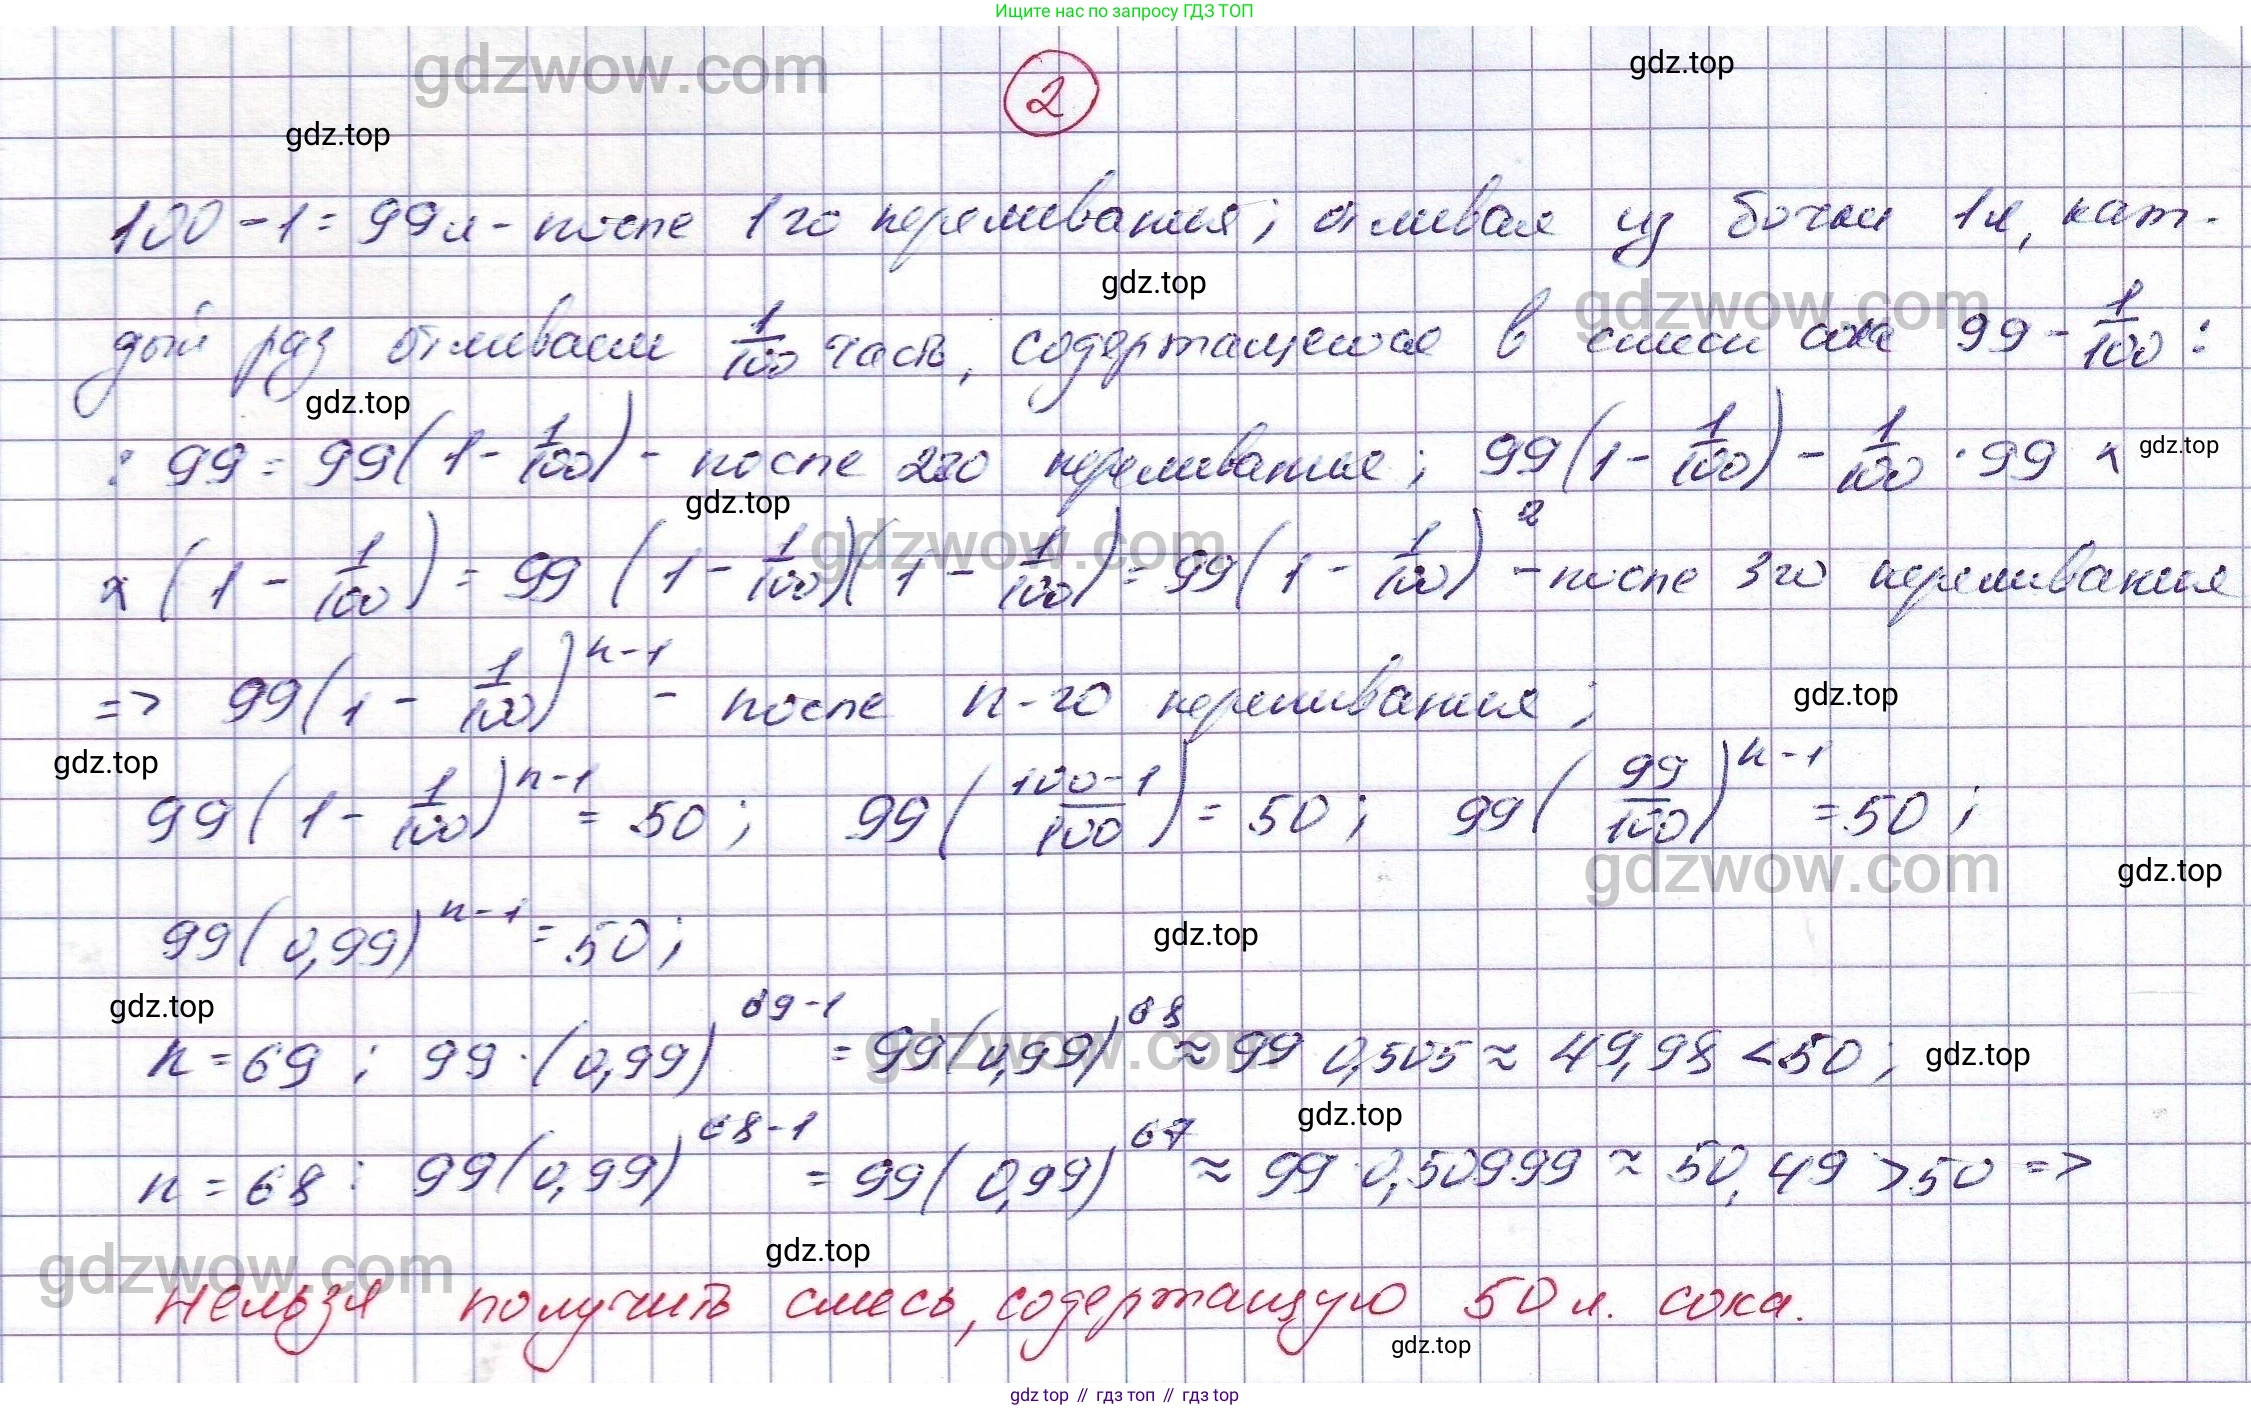 Ищите нас по запросу ГДЗ ТОП
gdzwow.com
2
gdz.top
gdz.top
100 - 1 = 99 л - после 1го переливания; отливая из бочки 1л, каж-
gdz.top
gdzwow.com
дый раз отливаем 1/100 часть, содержащегося в смеси сока 99 - 1/100 :
gdz.top
: 99 = 99(1 - 1/100) - после 2го переливания; 99(1 - 1/100) - 1/100 · 99 ×
gdz.top
gdz.top
gdzwow.com
× (1 - 1/100) = 99 (1 - 1/100)(1 - 1/100) = 99(1 - 1/100)² - после 3го переливания
=> 99(1 - 1/100)ⁿ⁻¹ - после n-го переливания;
gdz.top
gdz.top
99(1 - 1/100)ⁿ⁻¹ = 50; 99((100-1)/100) = 50; 99(99/100)ⁿ⁻¹ = 50;
gdzwow.com
gdz.top
99(0,99)ⁿ⁻¹ = 50;
gdz.top
gdz.top
n = 69; 99·(0,99)⁶⁹⁻¹ = 99(0,99)⁶⁸ ≈ 99 0,505 ≈ 49,98 < 50;
gdzwow.com
gdz.top
gdz.top
n = 68: 99(0,99)⁶⁸⁻¹ = 99(0,99)⁶⁷ ≈ 99 0,50999 ≈ 50,49 > 50 =>
gdz.top
gdzwow.com
Нельзя получить смесь, содержащую 50 л. сока.
gdz.top
gdz top // гдз топ // гдз top